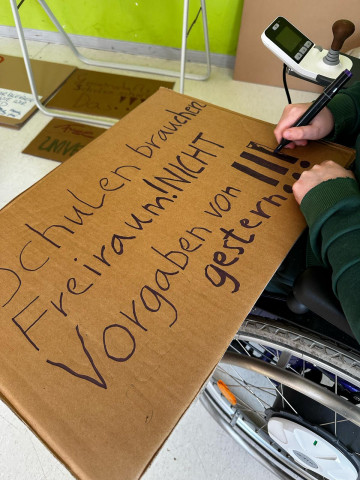 Schulen brauchen
Freiraum!NICHT
Vorgaben von
gestern!!!